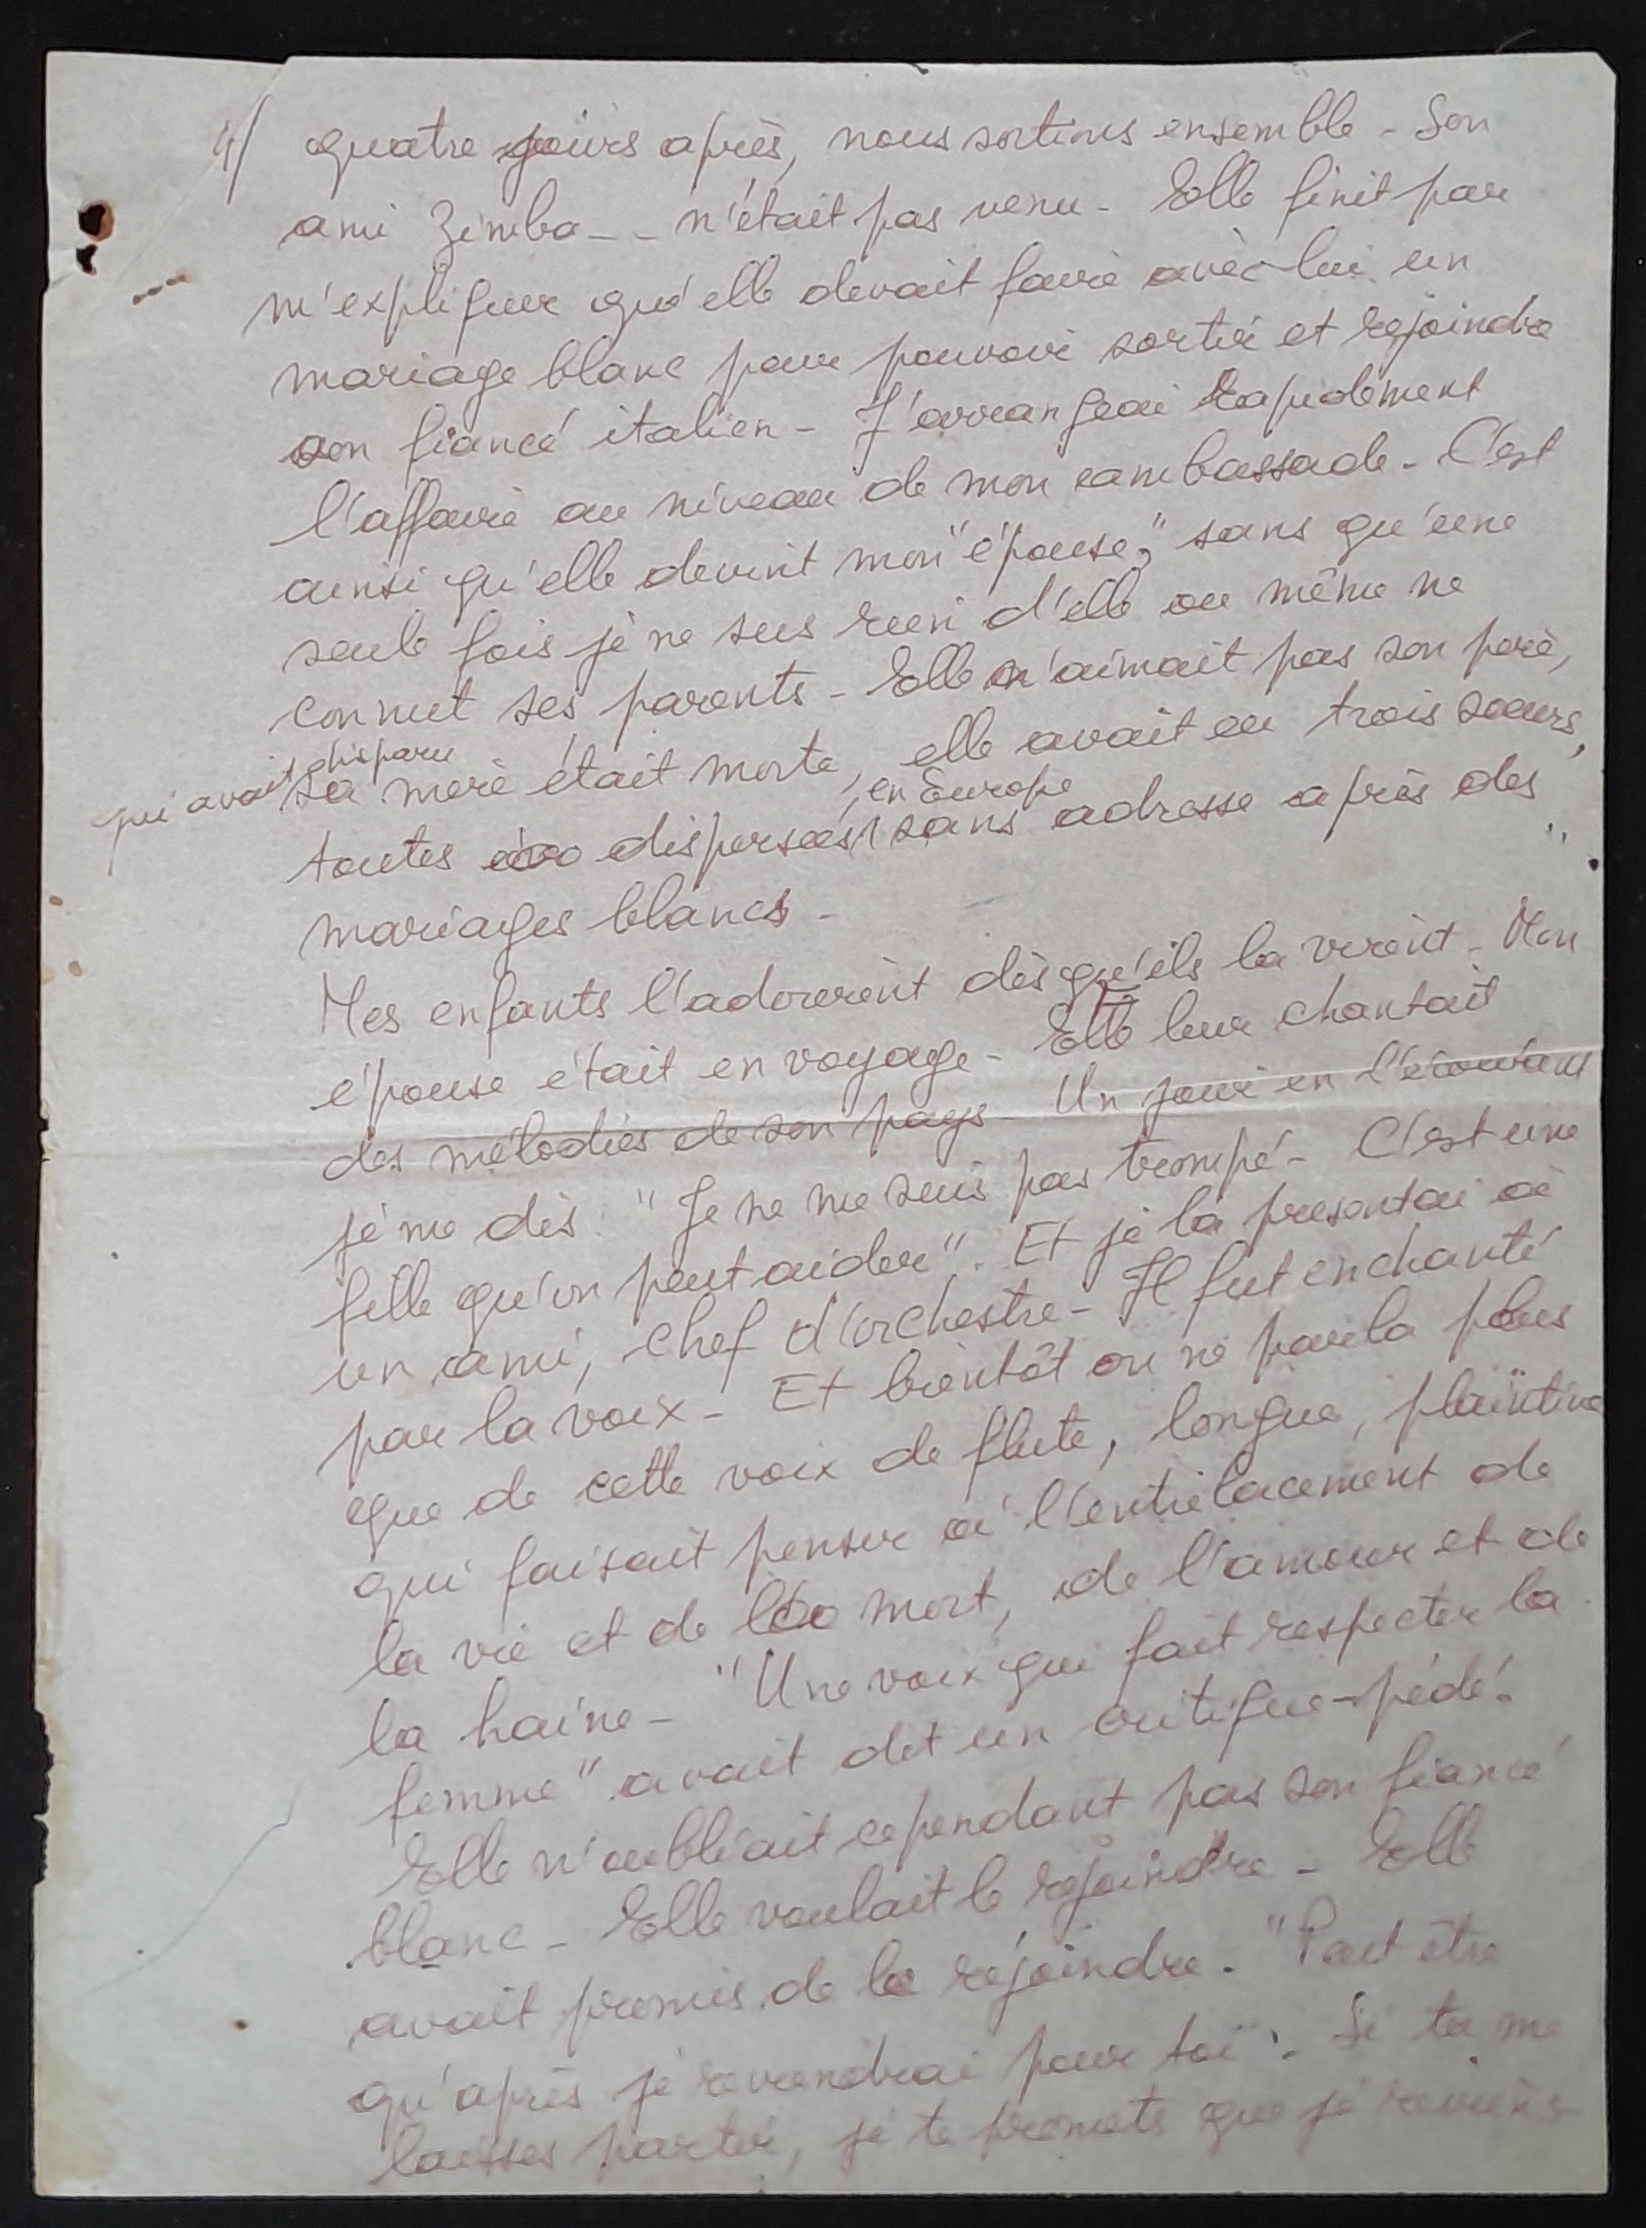 4/ quatre jours après, nous sortions ensemble - Son
ami Zimba -- n'était pas venu - Elle finit par
m'expliquer qu'elle devait faire avec lui un
mariage blanc pour pouvoir sortir et rejoindre
son fiancé italien - J'arrangeai rapidement
l'affaire au niveau de mon ambassade - C'est
ainsi qu'elle devint mon "épouse", sans qu'une
seule fois je ne sus rien d'elle ou même ne
connut ses parents - Elle n'aimait pas son père,
qui avait disparu
sa mère était morte, elle avait eu trois soeurs,
en Europe
toutes dispersées, sans adresse après des
mariages blancs -
Mes enfants l'adorèrent dès qu'ils la virent - Mon
épouse était en voyage - Elle leur chantait
des mélodies de son pays - Un jour en l'écoutant
je me dis "Je ne me suis pas trompé - C'est une
fille qu'on peut aider". Et je la présentai à
un ami, chef d'orchestre - Il fut enchanté
par la voix - Et bientôt on ne parla plus
que de cette voix de flute, longue, plaintive
qui faisait penser à l'entrelacement de
la vie et de la mort, de l'amour et de
la haine - "Une voix qui fait respecter la
femme" avait dit un critique-pédé.
Elle n'oubliait cependant pas son fiancé
blanc - Elle voulait le rejoindre - Elle
avait promis de le rejoindre. "Peut être
qu'après je reviendrai pour toi". Si tu me
laisses partir, je te promets que je reviens